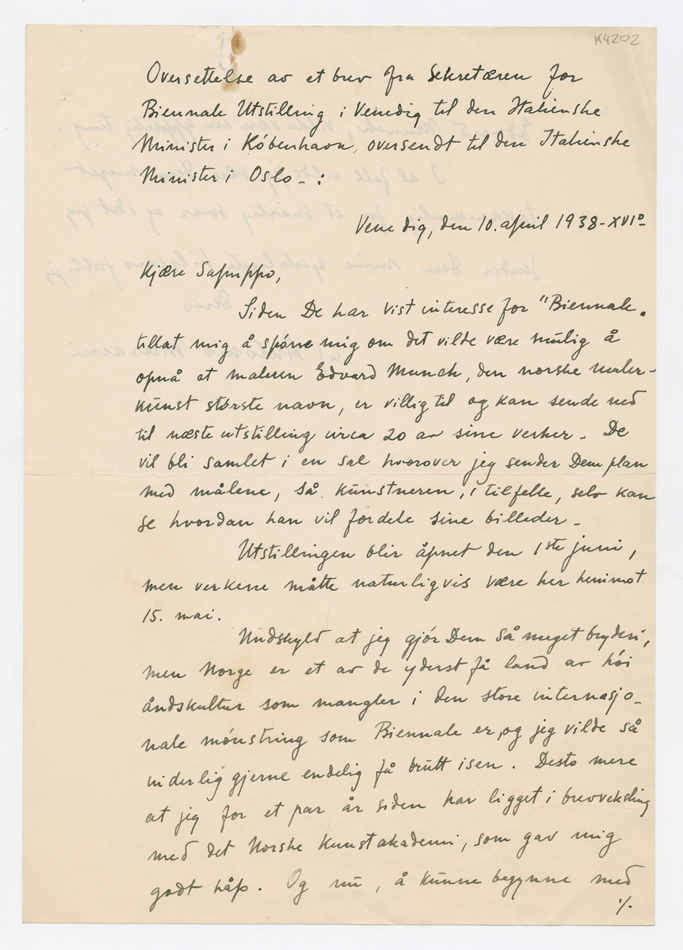 K4202
Oversettelse av et brev fra Sekretæren for
Biennale Utstilling i Venedig til den Italienske
Minister i København, oversendt til den Italienske
Minister i Oslo - :
Venedig, den 10. april 1938-XVIº
Kjære Sapuppo,
Siden De har vist interesse for "Biennale.
tillat mig å spörre mig om det vilde være mulig å
opnå at maleren Edvard Munch, den norske maler-
kunst störste navn, er villig til og kan sende ned
til næste utstilling circa 20 av sine verker. De
vil bli samlet i en sal hvorover jeg sender Dem plan
med målene, så kunstneren, i tilfelle, selv kan
se hvordan han vil fordele sine billeder.
Utstillingen blir åpnet den 1ste juni,
men verkene måtte naturligvis være her henimot
15. mai.
Undskyld at jeg gjör Dem så meget bryderi,
men Norge er et av de yderst få land av höi
åndskultur som mangler i den store internasjo-
nale mönstring som Biennale er, og jeg vilde så
inderlig gjerne endelig få brutt isen. Desto mere
at jeg for et par år siden har ligget i brevveksling
med det Norske Kunstakademi, som gav mig
godt håp. Og nu, å kunne begynne med
./.